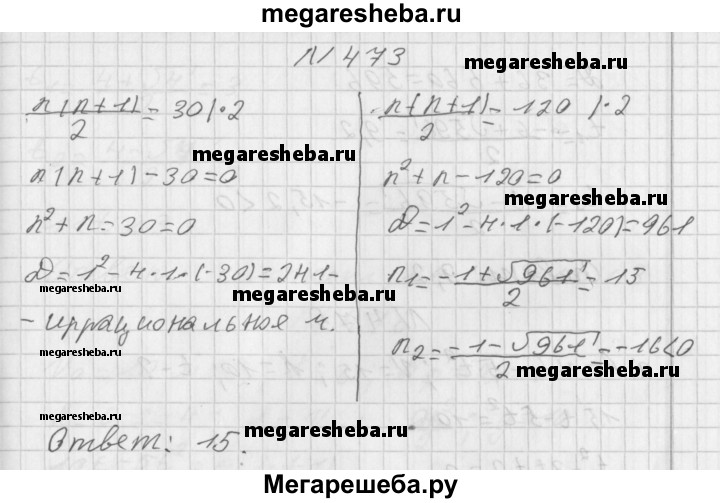 megaresheba.ru
N 473
megaresheba.ru
n(n+1)/2 = 30 |·2
megaresheba.ru
n(n+1)-30=0
n²+n-30=0
D=1²-4·1·(-30)=241-
megaresheba.ru
megaresheba.ru
-иррациональное ч.
n(n+1)/2 = 120 |·2
n²+n-120=0
megaresheba.ru
D=1²-4·1·(-120)=961
n₁=(-1+√961)/2=15
n₂=(-1-√961)/2=-16<0
megaresheba.ru
megaresheba.ru
Ответ: 15.
megaresheba.ru
Мегарешеба.ру